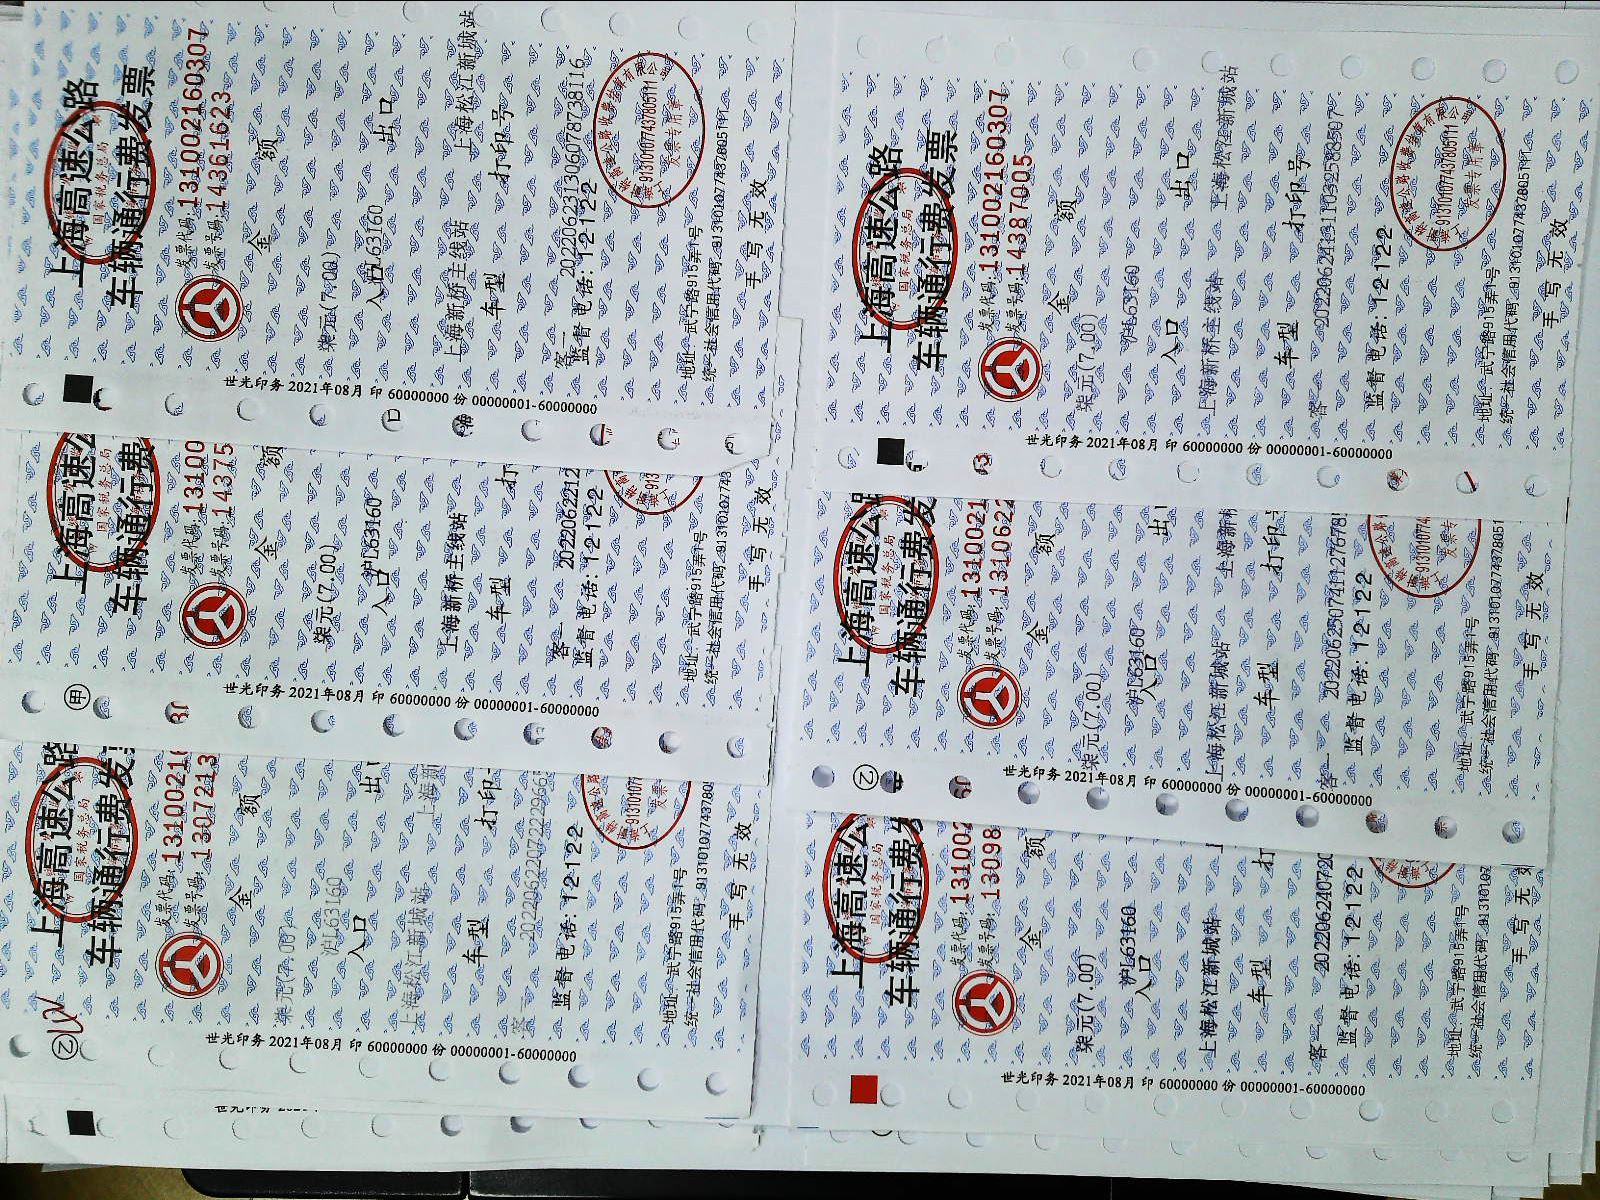 上海高速公路
国家税务总局
车辆通行费发票
发票代码:131002160307
发票号码:14361623
金 额
柒元(7.00)
沪L63160
入口 出口
上海新桥主线站 上海松江新城站
车型 打印号
客一
监督电话: 12122
913101077437805111
发票专用章
地址:武宁路915弄1号
统一社会信用代码:913101077437805111
手写无效
世光印务 2021年08月 印 60000000 份 00000001-60000000
上海高速公
国家税务总局
车辆通行费
发票代码:13100
发票号码:14375
金 额
柒元(7.00)
沪L63160
入口
上海新桥主线站
车型 打
客一 2022062212
监督电话: 12122
地址:武宁路915弄1号
手写无效
世光印务 2021年08月 印 60000000 份 00000001-60000000
甲
上海高速公路
国家税务总局
车辆通行费发
发票代码:13100216
发票号码:1307213
金 额
柒元(7.00)
沪L63160
入口 出
上海松江新城站 上海新
车型 打印
客一
监督电话: 12122
地址:武宁路915弄1号
手写无效
世光印务 2021年08月 印 60000000 份 00000001-60000000
乙
上海高速公路
国家税务总局
车辆通行费发票
发票代码:131002160307
发票号码:14387005
金 额
柒元(7.00)
沪L63160
入口 出口
上海新桥主线站 上海松江新城站
车型 打印号
客一
监督电话: 12122
913101077437805111
发票专用章
地址:武宁路915弄1号
统一社会信用代码:913101077437805111
手写无效
世光印务 2021年08月 印 60000000 份 00000001-60000000
上海高速公路
国家税务总局
车辆通行费发
发票代码:1310021
发票号码:1310622
金 额
柒元(7.00)
沪L63160
入口 出
上海松江新城站 上海新桥
车型 打印号
客一
监督电话: 12122
地址:武宁路915弄1号
手写无效
世光印务 2021年08月 印 60000000 份 00000001-60000000
乙
上海高速公
国家税务总局
车辆通行费发
发票代码:131002
发票号码:13098
金 额
柒元(7.00)
沪L63160
入口
上海松江新城站
车型 打
客一 20220624072
监督电话: 12122
地址:武宁路915弄1号
手写无效
世光印务 2021年08月 印 60000000 份 00000001-60000000